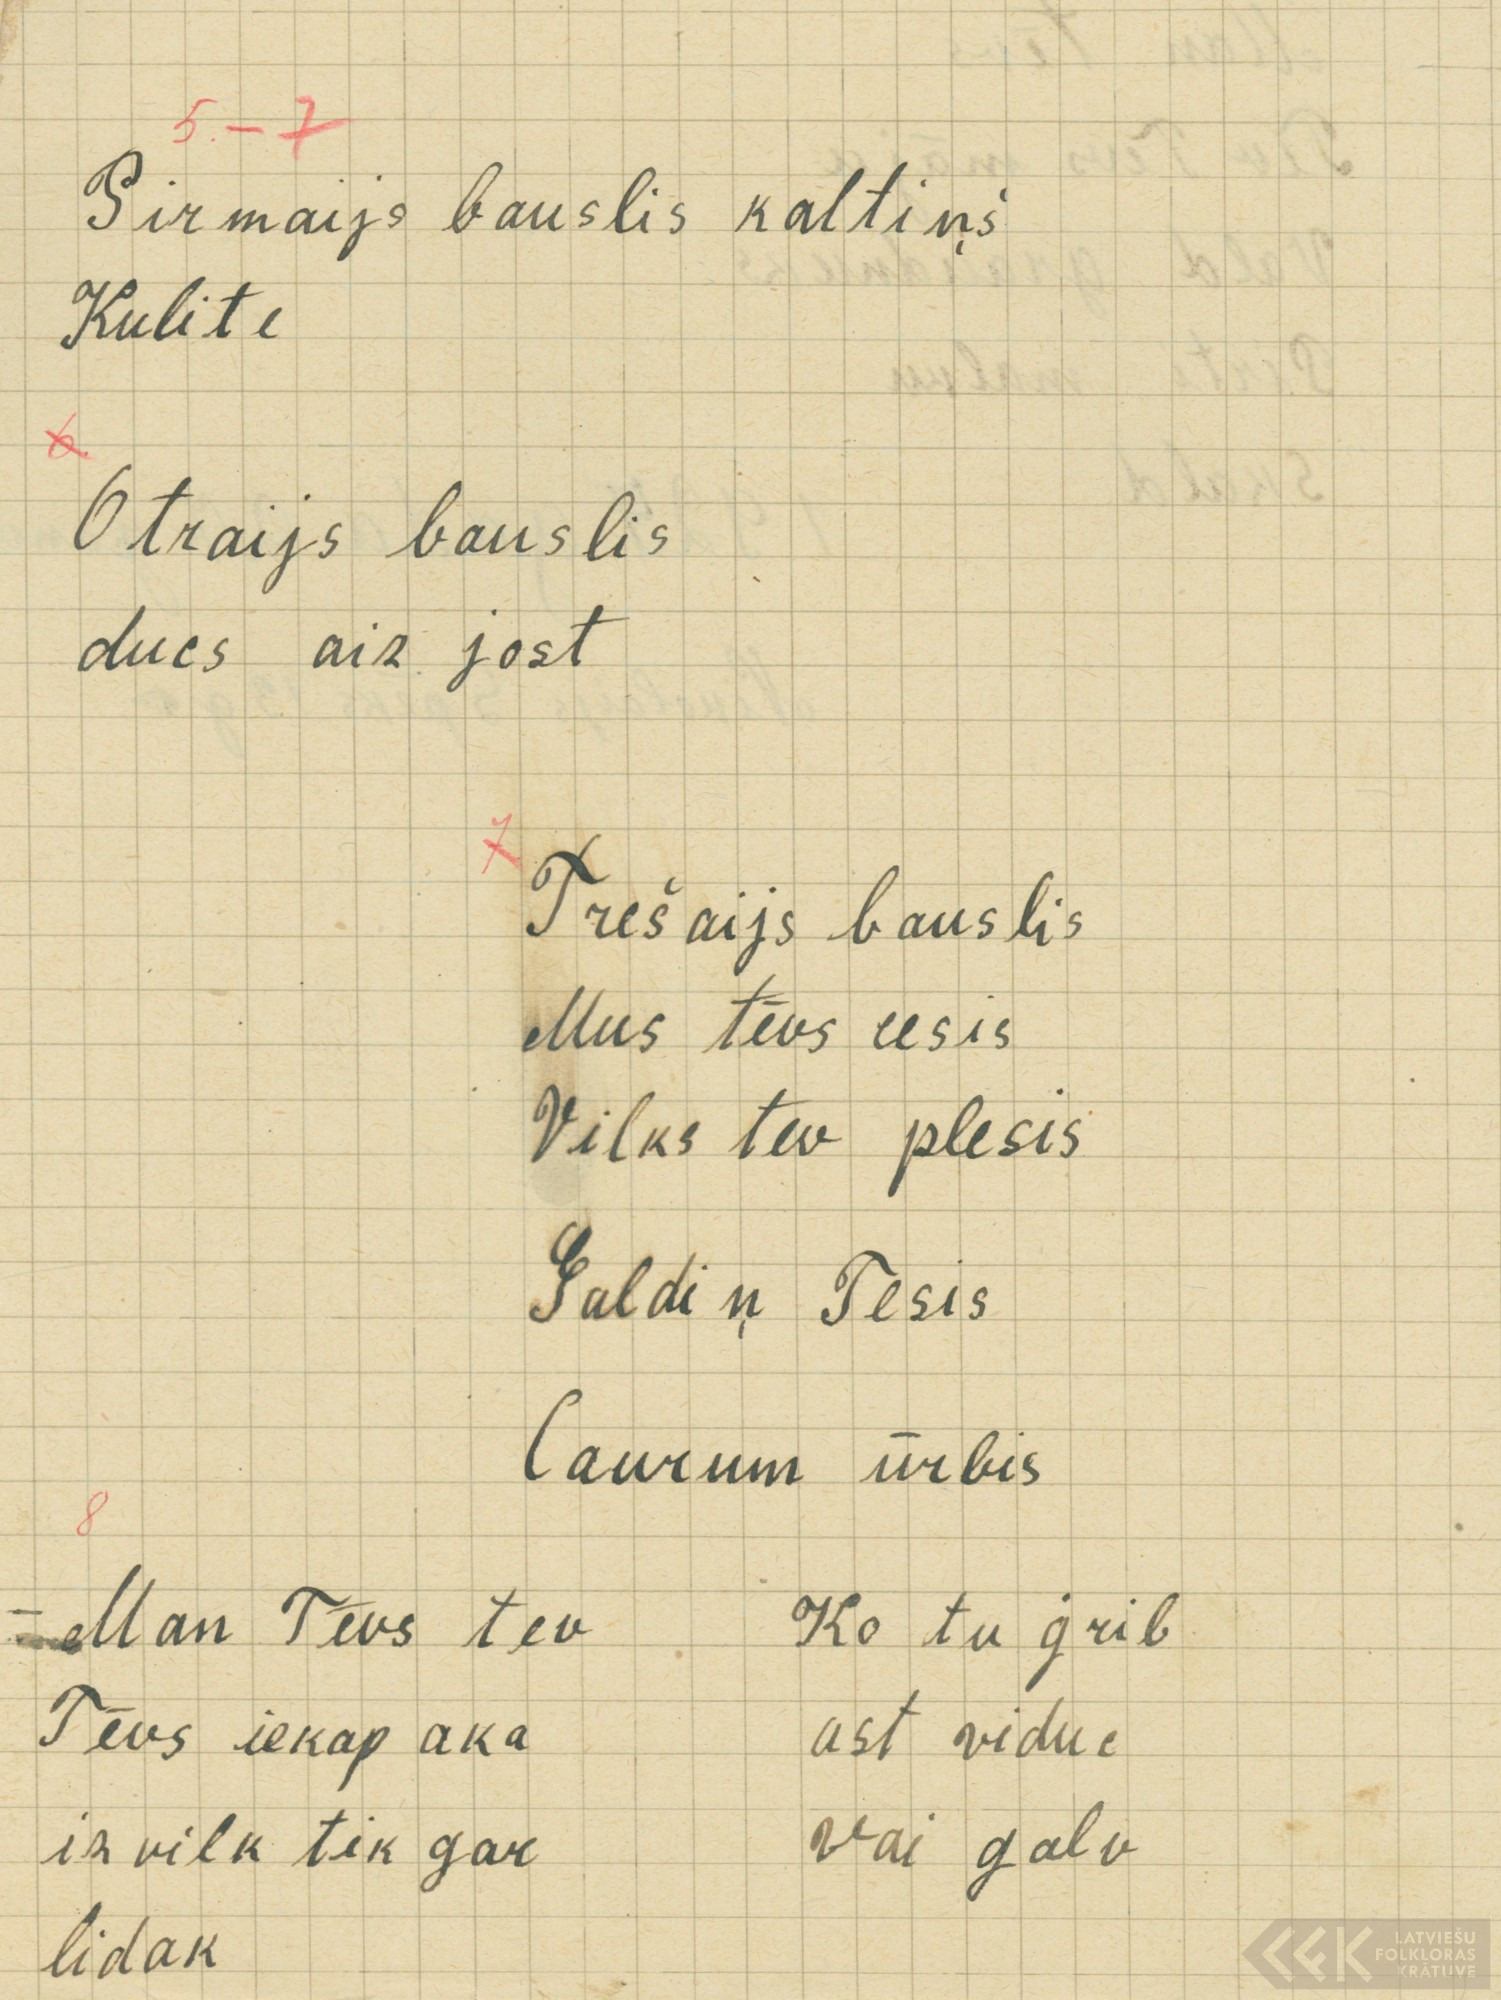 5. – 7
Pirmaijs bauslis kaltiņš
Kulite
6
Otraijs bauslis
ducs aiz jost
7
Trešaijs bauslis
Mus tēvs cesis
Vilks tev plesis
Galdiņ Tesis
Caurum ūrbis
8
Man Tēvs tev
Tēvs iekap aka
izvilk tik gar
lidak
Ko tu grib
ast vidue
vai galv
LATVIEŠU
FOLKLORAS
KRĀTUVE